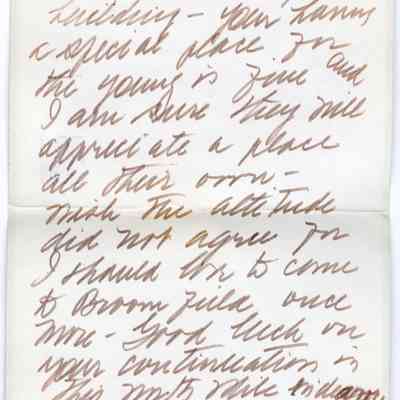 building - your having
a special place for
the young is fine and
I am sure they will
appreciate a place
all their own -
wish the altitude
did not agree for
I should love to come
to Broomfield once
more - Good luck on
your continuation in
this worth while endeavor